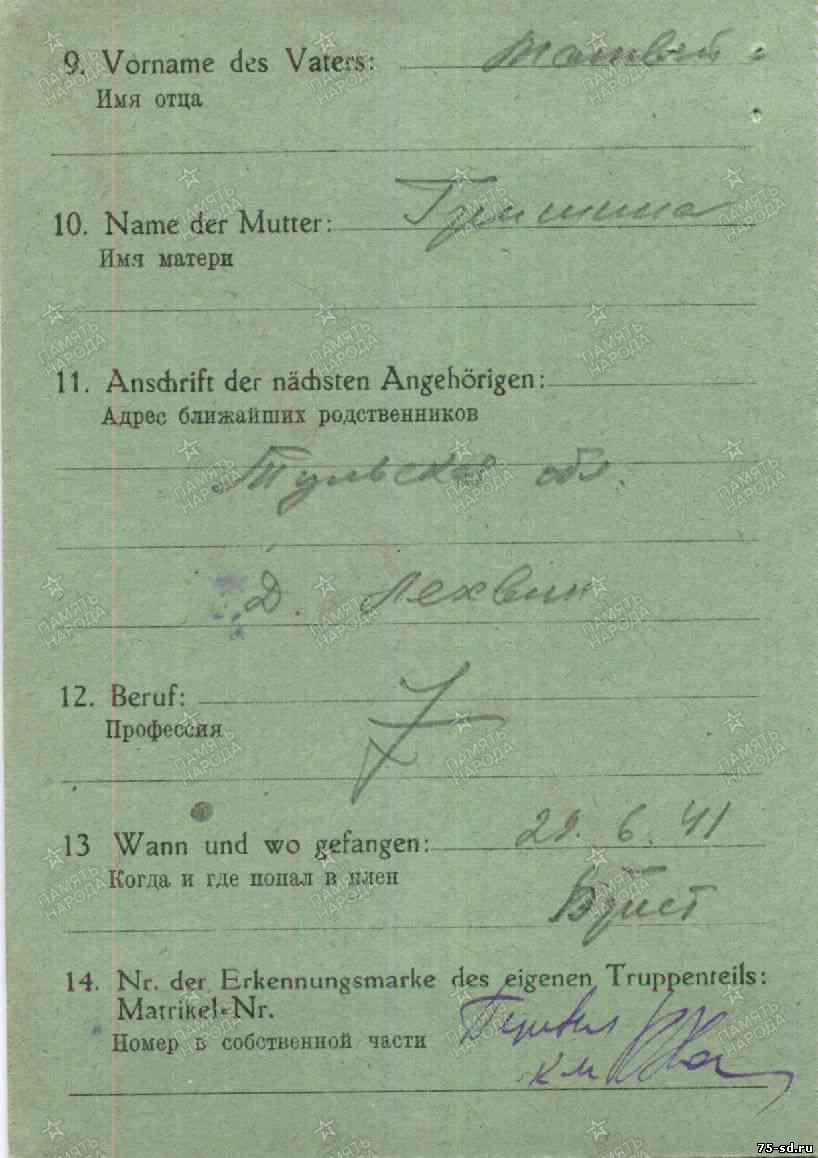 9. Vorname des Vaters: Матвей
Имя отца
10. Name der Mutter: Гришина
Имя матери
11. Anschrift der nächsten Angehörigen:
Адрес ближайших родственников
Тульская обл.
Д. Лехвин
12. Beruf:
Профессия
13 Wann und wo gefangen: 29. 6. 41
Когда и где попал в плен
Брест
14. Nr. der Erkennungsmarke des eigenen Truppenteils:
Matrikel-Nr.
Номер в собственной части
ПАМЯТЬ НАРОДА
75-sd.ru